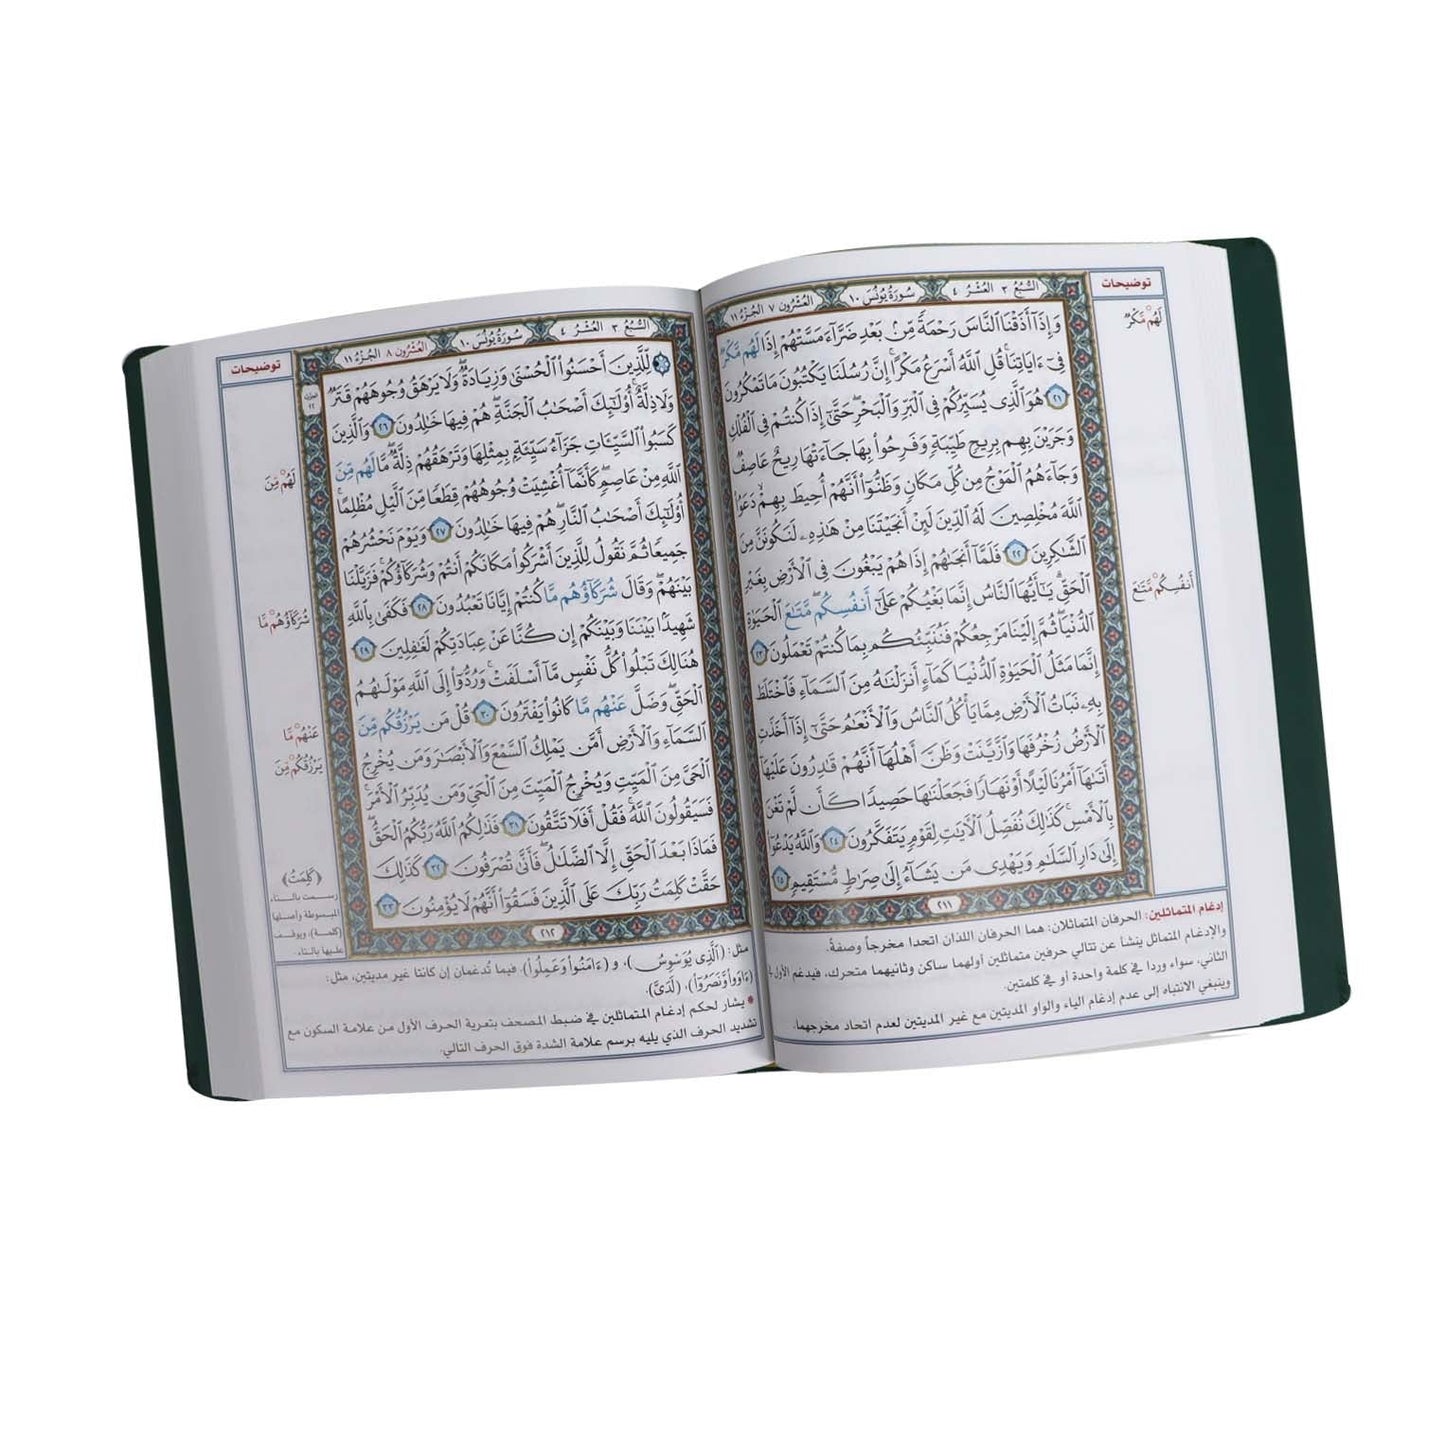 السُّبُعُ ٣ العُشْرُ ٤ سُورَةُ يُونُسَ ١٠ العُشْرُونِ ٧ الجُزْءُ ١١
توضيحات
وَإِذَآ أَذَقْنَا ٱلنَّاسَ رَحْمَةً مِّنۢ بَعْدِ ضَرَّآءَ مَسَّتْهُمْ إِذَا لَهُم مَّكْرٌ
فِىٓ ءَايَاتِنَا ۚ قُلِ ٱللَّهُ أَسْرَعُ مَكْرًا ۚ إِنَّ رُسُلَنَا يَكْتُبُونَ مَا تَمْكُرُونَ
٢١ هُوَ ٱلَّذِى يُسَيِّرُكُمْ فِى ٱلْبَرِّ وَٱلْبَحْرِ ۖ حَتَّىٰٓ إِذَا كُنتُمْ فِى ٱلْفُلْكِ
وَجَرَيْنَ بِهِم بِرِيحٍ طَيِّبَةٍ وَفَرِحُوا۟ بِهَا جَآءَتْهَا رِيحٌ عَاصِفٌ
وَجَآءَهُمُ ٱلْمَوْجُ مِن كُلِّ مَكَانٍ وَظَنُّوٓا۟ أَنَّهُمْ أُحِيطَ بِهِمْ ۙ دَعَوُا۟
ٱللَّهَ مُخْلِصِينَ لَهُ ٱلدِّينَ لَئِنْ أَنجَيْتَنَا مِنْ هَٰذِهِۦ لَنَكُونَنَّ مِنَ
ٱلشَّٰكِرِينَ ٢٢ فَلَمَّآ أَنجَىٰهُمْ إِذَا هُمْ يَبْغُونَ فِى ٱلْأَرْضِ بِغَيْرِ
ٱلْحَقِّ ۗ يَٰٓأَيُّهَا ٱلنَّاسُ إِنَّمَا بَغْيُكُمْ عَلَىٰٓ أَنفُسِكُم ۖ مَّتَٰعَ ٱلْحَيَوٰةِ
ٱلدُّنْيَا ۖ ثُمَّ إِلَيْنَا مَرْجِعُكُمْ فَنُنَبِّئُكُم بِمَا كُنتُمْ تَعْمَلُونَ ٢٣
إِنَّمَا مَثَلُ ٱلْحَيَوٰةِ ٱلدُّنْيَا كَمَآءٍ أَنزَلْنَٰهُ مِنَ ٱلسَّمَآءِ فَٱخْتَلَطَ
بِهِۦ نَبَاتُ ٱلْأَرْضِ مِمَّا يَأْكُلُ ٱلنَّاسُ وَٱلْأَنْعَٰمُ حَتَّىٰٓ إِذَآ أَخَذَتِ
ٱلْأَرْضُ زُخْرُفَهَا وَٱزَّيَّنَتْ وَظَنَّ أَهْلُهَآ أَنَّهُمْ قَٰدِرُونَ عَلَيْهَآ
أَتَىٰهَآ أَمْرُنَا لَيْلًا أَوْ نَهَارًا فَجَعَلْنَٰهَا حَصِيدًا كَأَن لَّمْ تَغْنَ
بِٱلْأَمْسِ ۚ كَذَٰلِكَ نُفَصِّلُ ٱلْءَايَٰتِ لِقَوْمٍ يَتَفَكَّرُونَ ٢٤ وَٱللَّهُ يَدْعُوٓا۟
إِلَىٰ دَارِ ٱلسَّلَٰمِ وَيَهْدِى مَن يَشَآءُ إِلَىٰ صِرَٰطٍ مُّسْتَقِيمٍ ٢٥
لَهُمْ مَّكْرٌ
أَنفُسِكُمْ مَّتَٰعَ
٢١١
إدغام المتماثلين: الحرفان المتماثلان: هما الحرفان اللذان اتحدا مخرجاً وصفةً.
والإدغام المتماثل ينشأ عن تتالي حرفين متماثلين أولهما ساكن وثانيهما متحرك، فيدغم الأول في
الثاني، سواء وردا في كلمة واحدة أو في كلمتين.
وينبغي الانتباه إلى عدم إدغام الياء والواو المديتين مع غير المديتين لعدم اتحاد مخرجهما.
السُّبُعُ ٣ العُشْرُ ٤ سُورَةُ يُونُسَ ١٠ العُشْرُونِ ٨ الجُزْءُ ١١
توضيحات
لِّلَّذِينَ أَحْسَنُوا۟ ٱلْحُسْنَىٰ وَزِيَادَةٌ ۖ وَلَا يَرْهَقُ وُجُوهَهُمْ قَتَرٌ
وَلَا ذِلَّةٌ ۚ أُو۟لَٰٓئِكَ أَصْحَٰبُ ٱلْجَنَّةِ ۖ هُمْ فِيهَا خَٰلِدُونَ ٢٦ وَٱلَّذِينَ
كَسَبُوا۟ ٱلسَّيِّـَٔاتِ جَزَآءُ سَيِّئَةٍۭ بِمِثْلِهَا وَتَرْهَقُهُمْ ذِلَّةٌ ۖ مَّا لَهُم مِّنَ
ٱللَّهِ مِنْ عَاصِمٍ ۖ كَأَنَّمَآ أُغْشِيَتْ وُجُوهُهُمْ قِطَعًا مِّنَ ٱلَّيْلِ مُظْلِمًا ۚ
أُو۟لَٰٓئِكَ أَصْحَٰبُ ٱلنَّارِ ۖ هُمْ فِيهَا خَٰلِدُونَ ٢٧ وَيَوْمَ نَحْشُرُهُمْ
جَمِيعًا ثُمَّ نَقُولُ لِلَّذِينَ أَشْرَكُوا۟ مَكَانَكُمْ أَنتُمْ وَشُرَكَآؤُكُمْ ۚ فَزَيَّلْنَا
بَيْنَهُمْ ۖ وَقَالَ شُرَكَآؤُهُم مَّا كُنتُمْ إِيَّانَا تَعْبُدُونَ ٢٨ فَكَفَىٰ بِٱللَّهِ
شَهِيدًۢا بَيْنَنَا وَبَيْنَكُمْ إِن كُنَّا عَنْ عِبَادَتِكُمْ لَغَٰفِلِينَ ٢٩
هُنَالِكَ تَبْلُوا۟ كُلُّ نَفْسٍ مَّآ أَسْلَفَتْ ۚ وَرُدُّوٓا۟ إِلَى ٱللَّهِ مَوْلَىٰهُمُ
ٱلْحَقِّ ۖ وَضَلَّ عَنْهُم مَّا كَانُوا۟ يَفْتَرُونَ ٣٠ قُلْ مَن يَرْزُقُكُم مِّنَ
ٱلسَّمَآءِ وَٱلْأَرْضِ أَمَّن يَمْلِكُ ٱلسَّمْعَ وَٱلْأَبْصَٰرَ وَمَن يُخْرِجُ
ٱلْحَىَّ مِنَ ٱلْمَيِّتِ وَيُخْرِجُ ٱلْمَيِّتَ مِنَ ٱلْحَىِّ وَمَن يُدَبِّرُ ٱلْأَمْرَ ۚ
فَسَيَقُولُونَ ٱللَّهُ ۚ فَقُلْ أَفَلَا تَتَّقُونَ ٣١ فَذَٰلِكُمُ ٱللَّهُ رَبُّكُمُ ٱلْحَقُّ ۖ
فَمَاذَا بَعْدَ ٱلْحَقِّ إِلَّا ٱلضَّلَٰلُ ۖ فَأَنَّىٰ تُصْرَفُونَ ٣٢ كَذَٰلِكَ
حَقَّتْ كَلِمَتُ رَبِّكَ عَلَى ٱلَّذِينَ فَسَقُوٓا۟ أَنَّهُمْ لَا يُؤْمِنُونَ ٣٣
لَهُمْ مِّنَ
شُرَكَآؤُهُمْ مَّا
عَنْهُمْ مَّا
يَرْزُقُكُمْ مِّنَ
﴿كَلِمَتُ﴾
رسمت بالتاء
المبسوطة وأصلها
(كلمة)، ويوقف
عليها بالتاء.
٢١٢
مثل: (ٱلَّذِى يُوَسْوِسُ)، و (ءَامَنُوا۟ وَعَمِلُوا۟). فيما تُدغمان إن كانتا غير مديتين، مثل:
(ءَاوَوا۟ وَّنَصَرُوٓا۟)، (لَدَىَّ).
* يشار لحكم إدغام المتماثلين في ضبط المصحف بتعرية الحرف الأول من علامة السكون مع
تشديد الحرف الذي يليه برسم علامة الشدة فوق الحرف التالي.